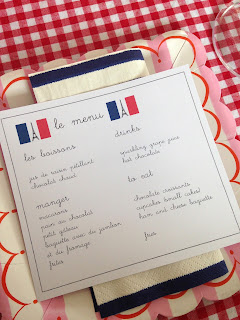 le menu
les boissons
jus de raisin pétillant
chocolat chaud
manger
macarons
pain au chocolat
petit gâteau
baguette avec du jambon
et du fromage
frites
drinks
sparkling grape juice
hot chocolate
to eat
chocolate croissants
cupcakes (small cakes)
ham and cheese baguette
fries